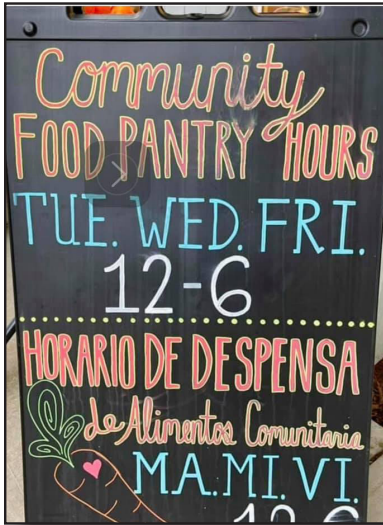 Community
FOOD PANTRY HOURS
TUE. WED. FRI.
12-6
HORARIO DE DESPENSA
de Alimentos Comunitaria
MA. MI. VI.